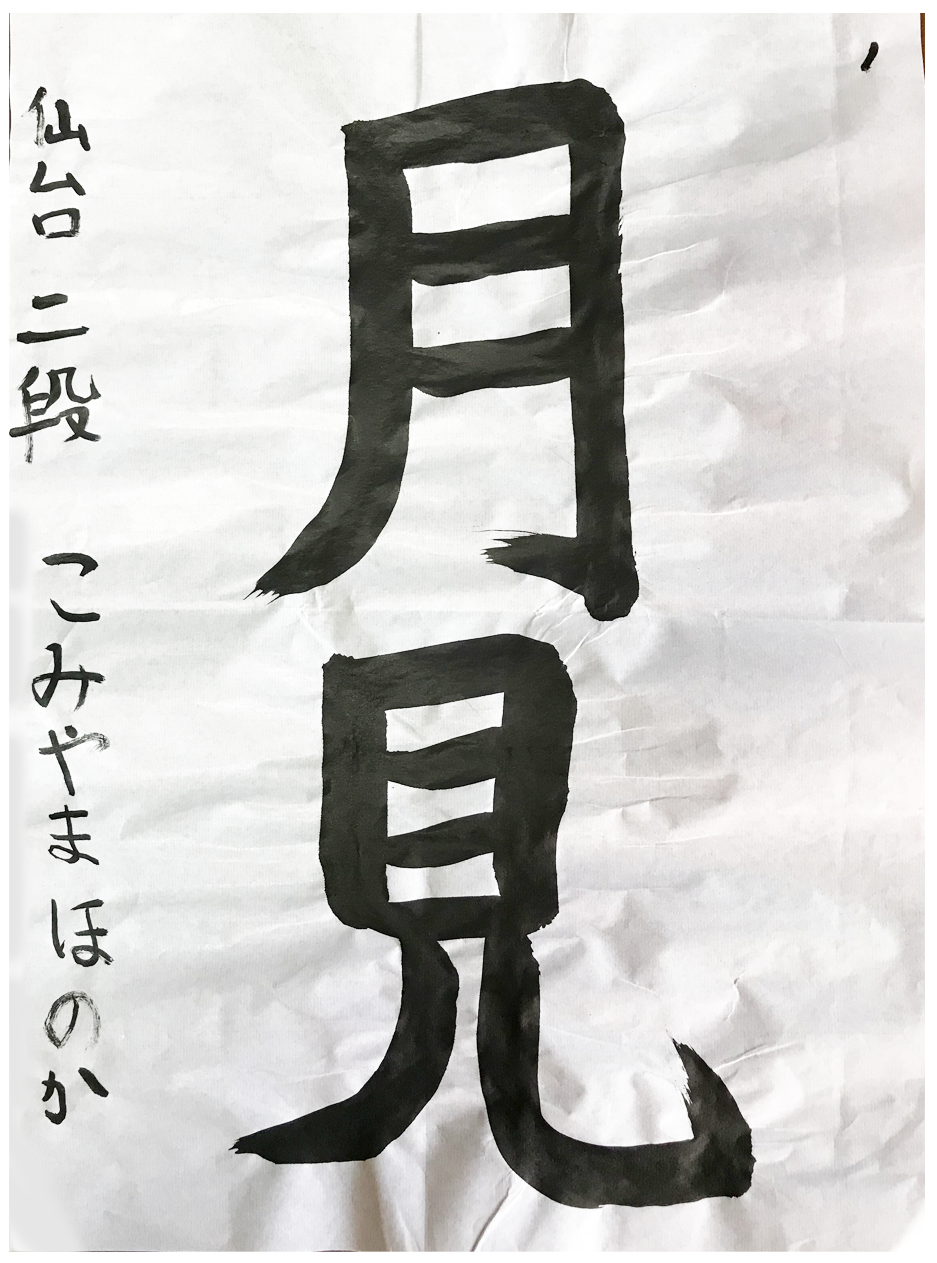 月見
仙台 二段 こみやまほのか